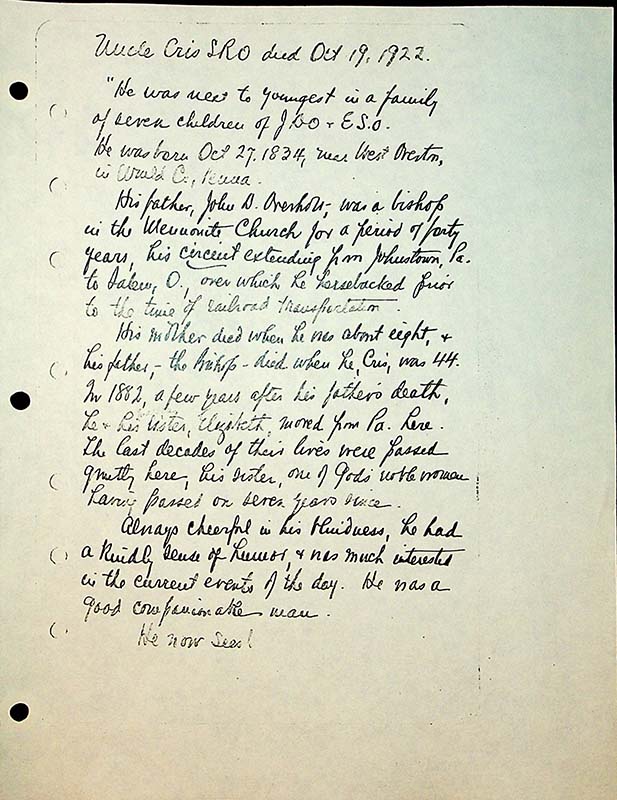 Uncle Cris SRO died Oct 19, 1922.
"He was next to youngest in a family
of seven children of JDO + ESO.
He was born Oct 27, 1834, near West Overton,
in Westld Co., Penna.
His father, John D. Overholt, was a bishop
in the Mennonite Church for a period of forty
years, his circuit extending from Johnstown, Pa.
to Salem, O., over which he horsebacked prior
to the time of railroad transportation.
His mother died when he was about eight, +
his father, - the Bishop - died when he, Cris, was 44.
In 1882, a few years after his father's death,
he + his sister, Elizabeth, moved from Pa. here.
The last decades of their lives were passed
quietly here, his sister, one of God's noble women
having passed on seven years since.
Always cheerful in his blindness, he had
a kindly sense of humor, + was much interested
in the current events of the day. He was a
good companionable man.
He now sees!